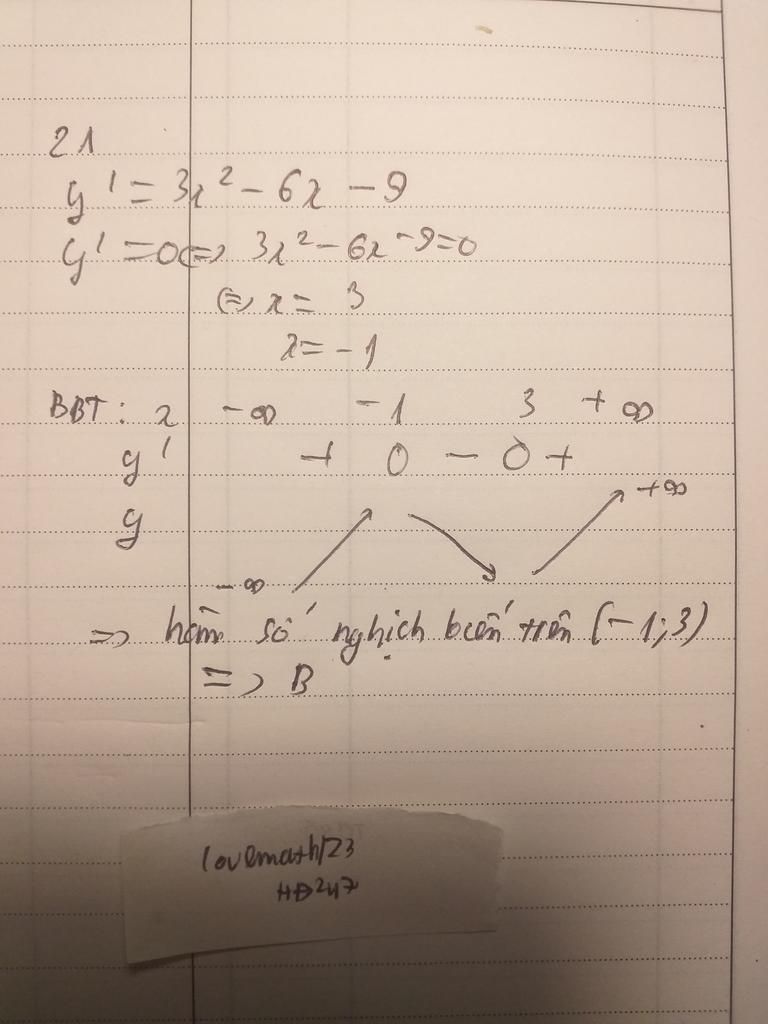 21
y' = 3x² - 6x - 9
y' = 0 <=> 3x² - 6x - 9 = 0
<=> x = 3
x = -1
BBT: x -∞ -1 3 +∞
y' + 0 - 0 +
+∞
y
-∞
=> hàm số nghịch biến trên (-1; 3)
=> B
lovemath123
HĐ247